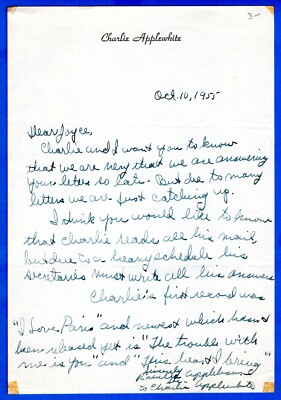 3-
Charlie Applewhite
Oct. 10, 1955
Dear Joyce,
Charlie and I want you to know
that we are very that we are answering
your letter so late. But due to many
letters we are just catching up.
I think you would like to know
that Charlie reads all his mail
but due to a heavy schedule his
secretaries must write all his answers
Charlie's first record was
"I Love Paris" and newest which hasn't
been released yet is "The trouble with
me is You" and "This heart I bring"
Sincerely
to Charlie Applewhite